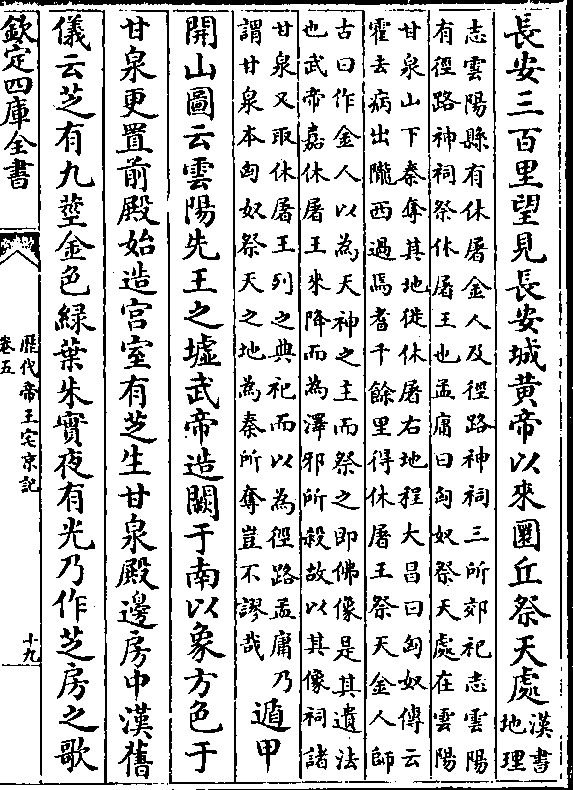 長安三百里望見長安城黄帝以來圜丘祭天處
漢書
地理
志雲陽縣有休屠金人及徑路神祠三所郊祀志雲陽
有徑路神祠祭休屠王也孟庸曰匈奴祭天處在雲陽
甘泉山下秦奪其地徙休屠右地程大昌曰匈奴傳云
霍去病出隴西過焉耆千餘里得休屠王祭天金人師
古曰作金人以為天神之主而祭之即佛像是其遺法
也武帝嘉休屠王來降而為澤邪所殺故以其像祠諸
甘泉又取休屠王列之典祀而以為徑路孟庸乃
謂甘泉本匈奴祭天之地為秦所奪豈不謬哉
遁甲
開山圖云雲陽先王之墟武帝造闕于南以象方色于
甘泉更置前殿始造宫室有芝生甘泉殿邊房中漢舊
儀云芝有九莖金色緑葉朱實夜有光乃作芝房之歌
欽定四庫全書
歷代帝王宅京記
卷五
十九